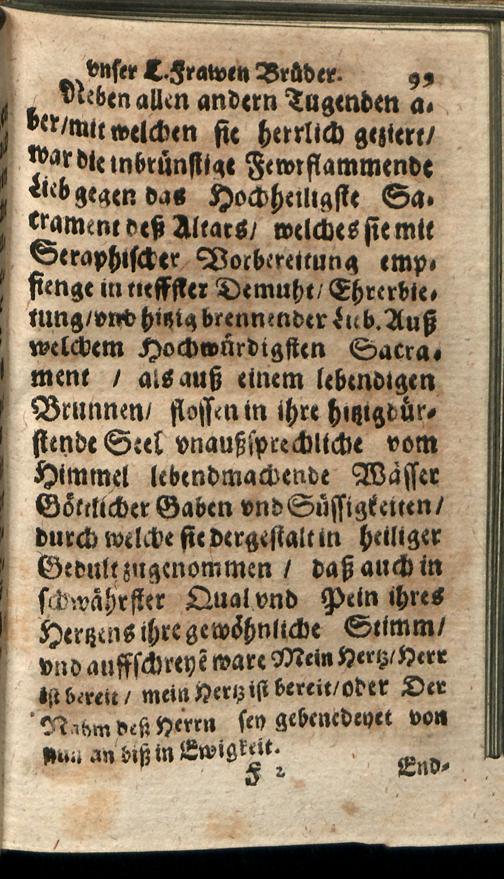 vnser L. Frawen Brüder. 99
Neben allen andern Tugenden a-
ber/mit welchen sie herrlich geziert/
war die inbrünstige Fewrflammende
Lieb gegen das Hochheiligste Sa-
crament deß Altars/ welches sie mit
Seraphischer Vorbereitung emp-
fienge in tieffster Demuht/ Ehrerbie-
tung/vnd hitzig brennender Lieb. Auß
welchem Hochwürdigsten Sacra-
ment / als auß einem lebendigen
Brunnen/ flossen in ihre hitzigdür-
stende Seel vnaußsprechliche vom
Himmel lebendmachende Wässer
Göttlicher Gaben vnd Süssigkeiten/
durch welche sie dergestalt in heiliger
Gedult zugenommen / daß auch in
schwährster Qual vnd Pein ihres
Hertzens ihre gewöhnliche Stimm/
vnd auffschreyē ware Mein Hertz/Herr
ist bereit / mein Hertz ist bereit/oder Der
Nahm deß Herrn sey gebenedeyet von
nun an biß in Ewigkeit.
F 2 End-